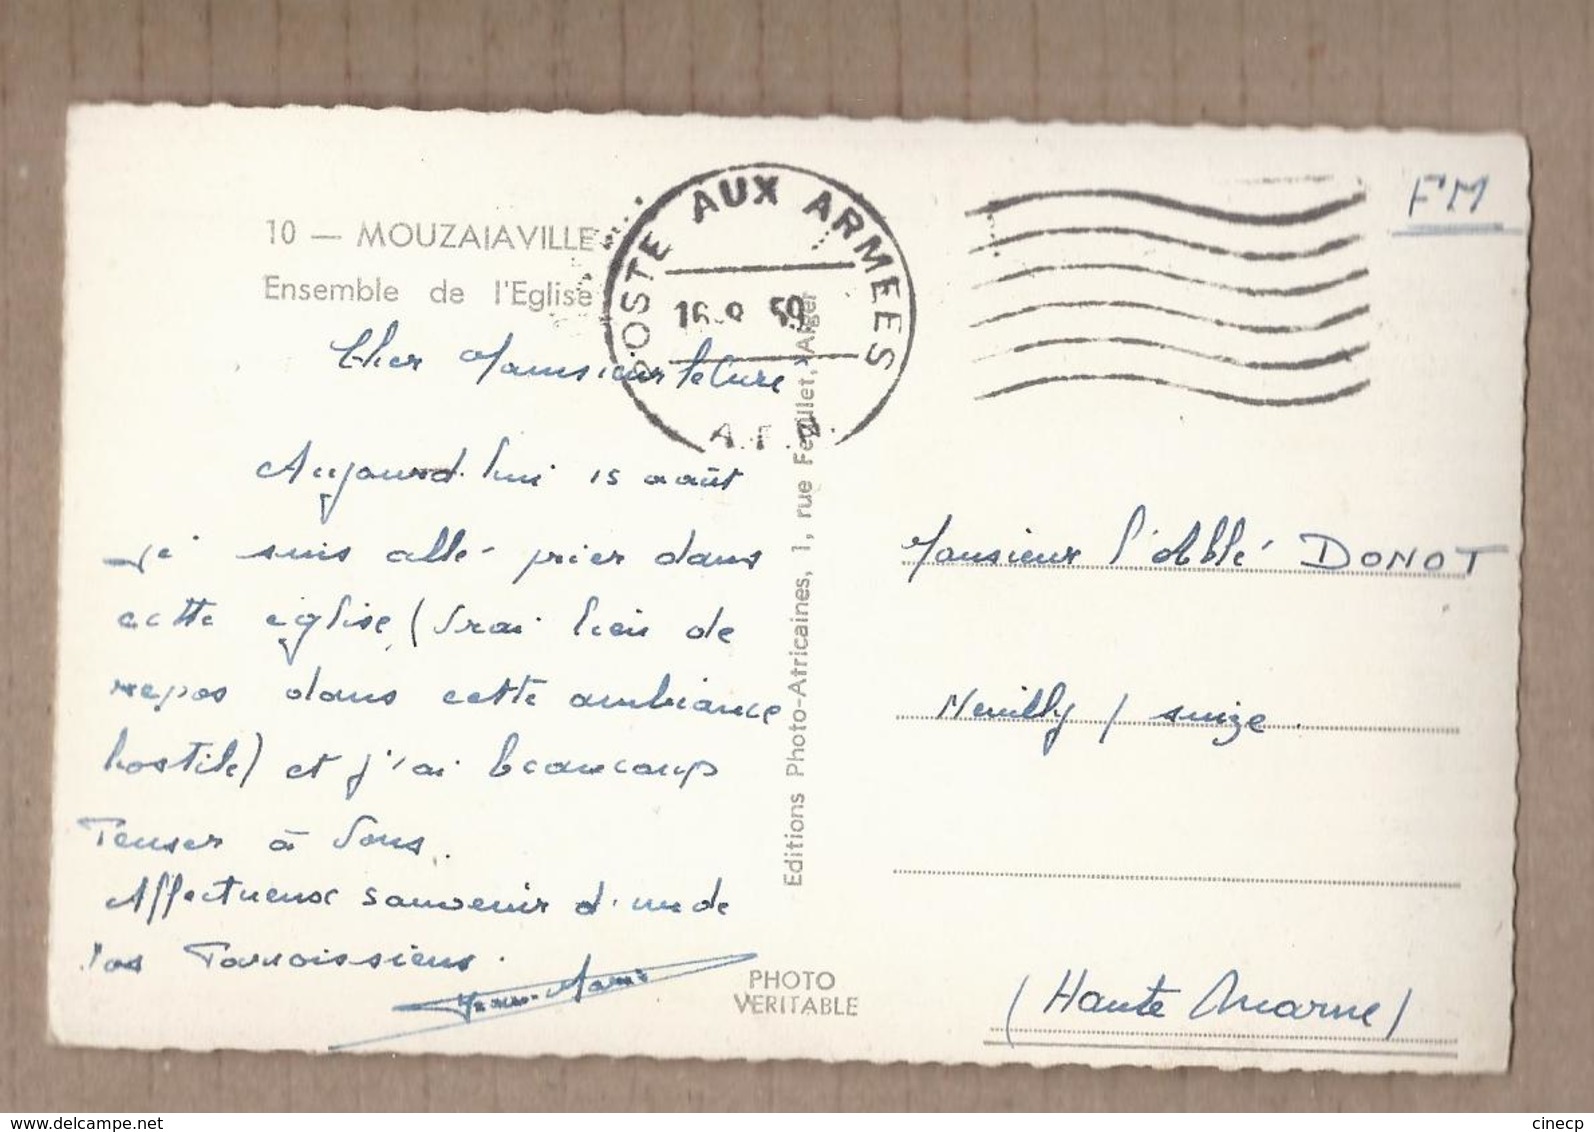 10 — MOUZAIAVILLE
Ensemble de l'Eglise
POSTE AUX ARMEES
16-8 59
FM
Cher Monsieur le Curé
Aujourd'hui 15 août
je suis allé prier dans
cette église (vrai lieu de
repos dans cette ambiance
hostile) et j'ai beaucoup
Penser à Vous.
Affectueux souvenir d'un de
Vos Paroissiens.
Editions Photo-Africaines, 1, rue Feuillet, Alger
PHOTO
VERITABLE
Monsieur l'Abbé DONOT
Neuilly / suize.
(Haute Marne)
delcampe.net
cinecp